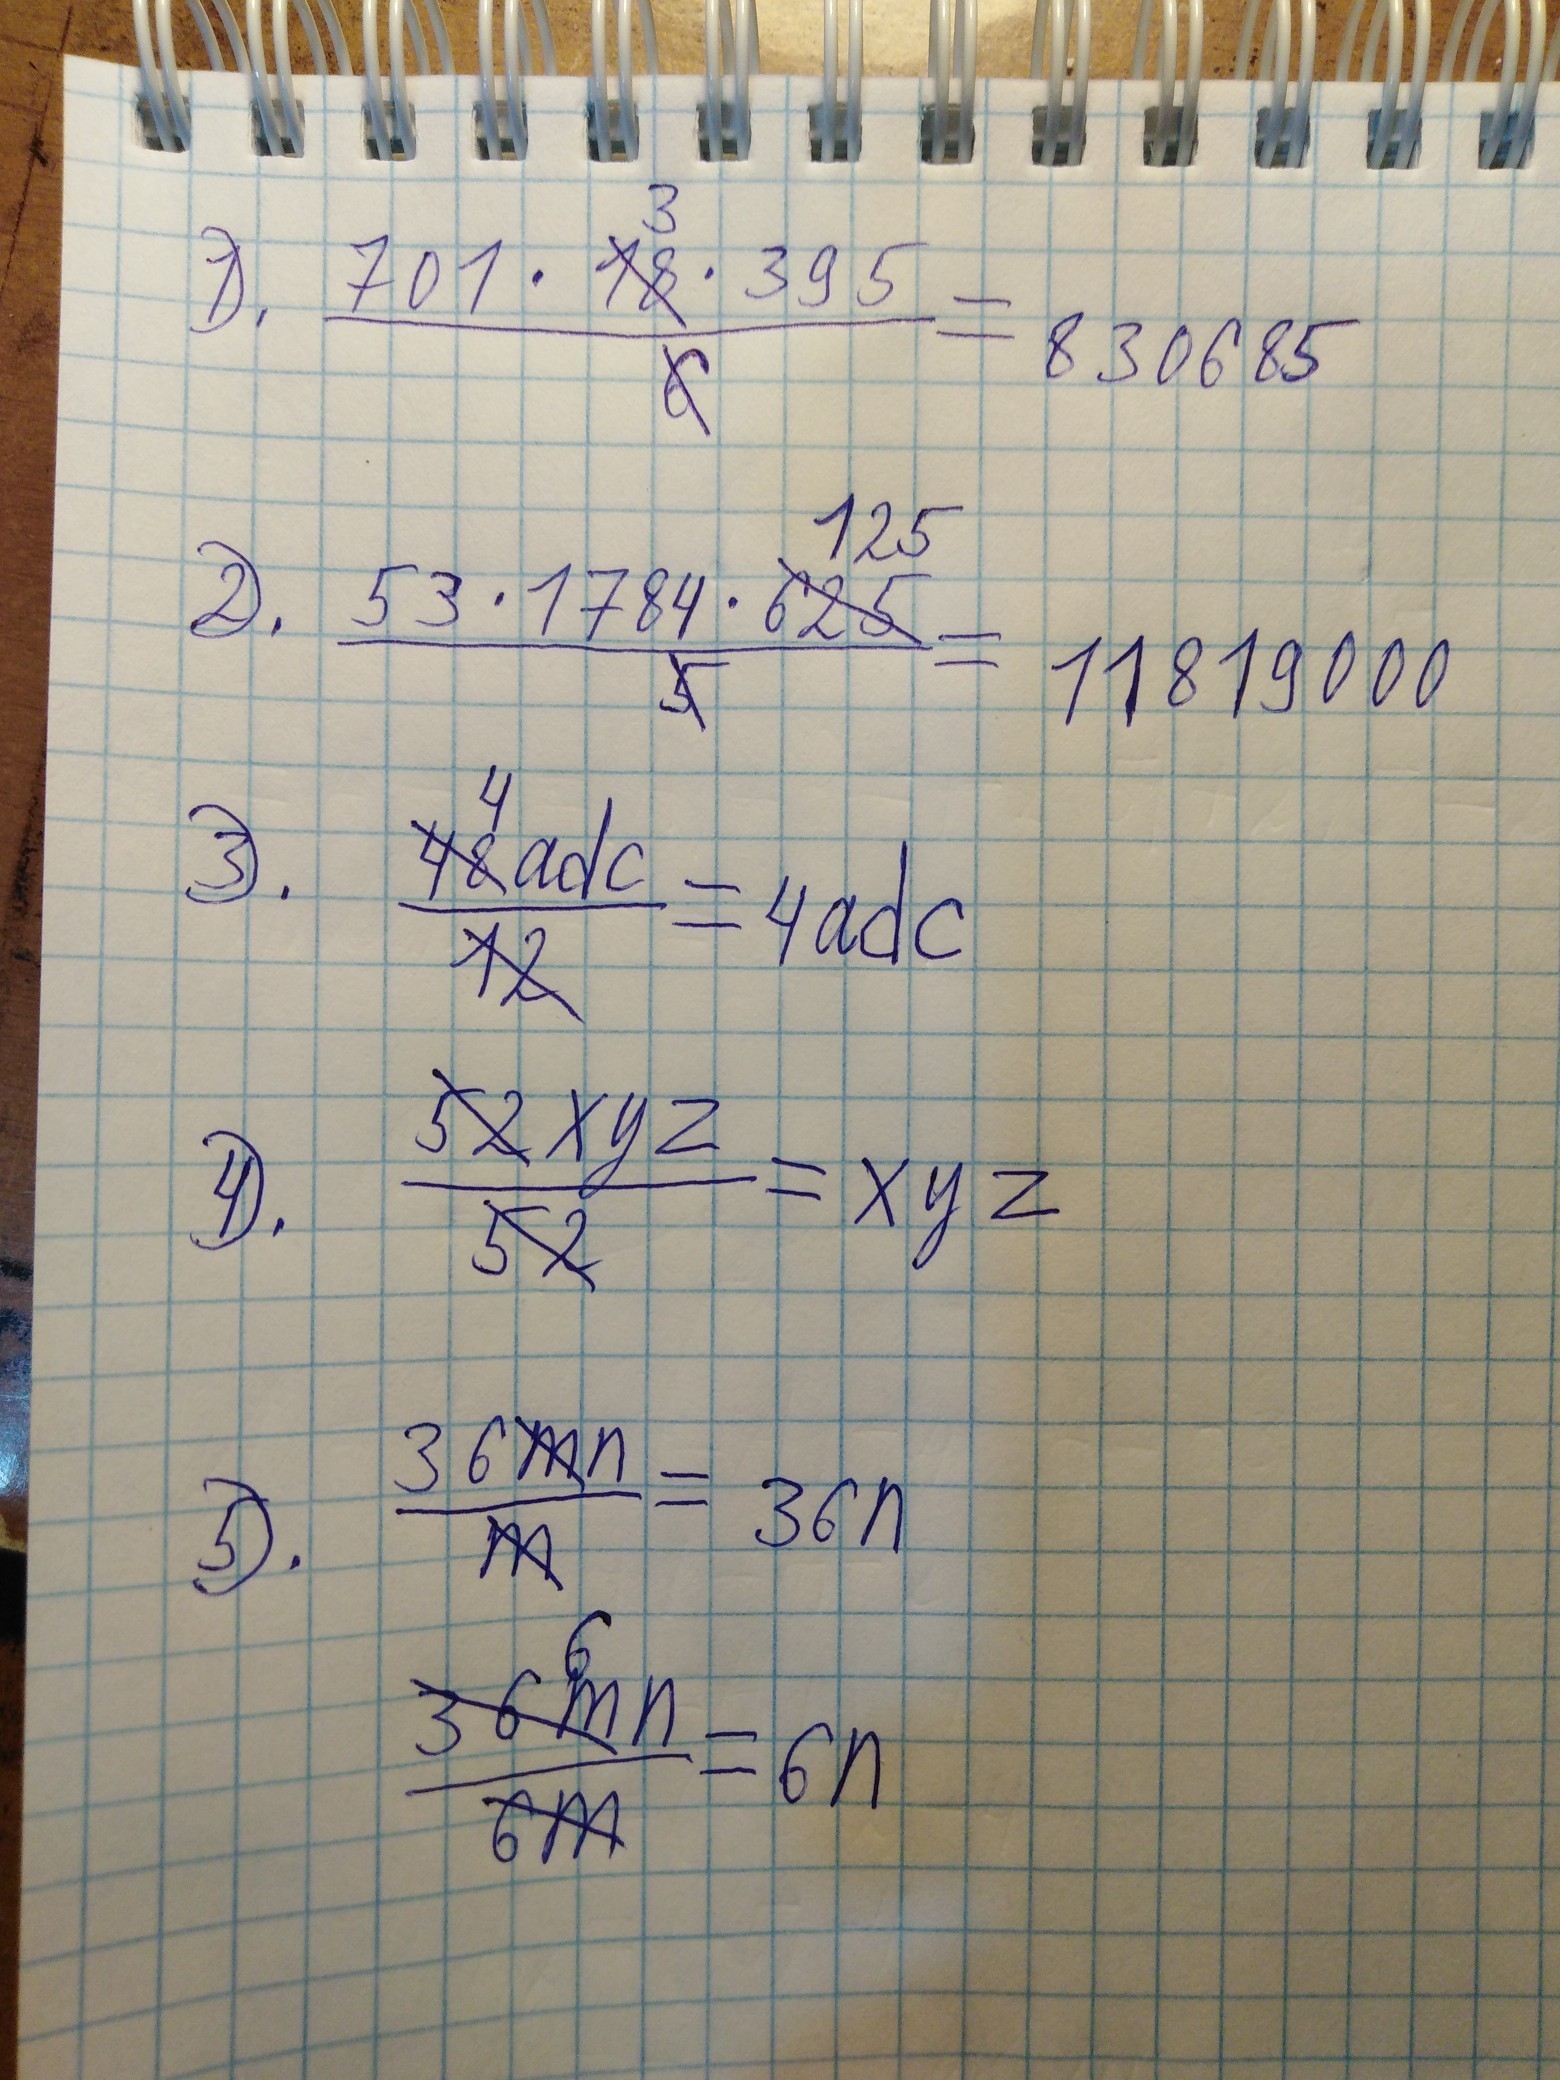 1). 701 · 18 · 395 / 6 = 830685
3
2). 53 · 1784 · 625 / 5 = 11819000
125
3). 48adc / 12 = 4adc
4
4). 52xyz / 52 = xyz
5). 36mn / m = 36n
36mn / 6m = 6n
6